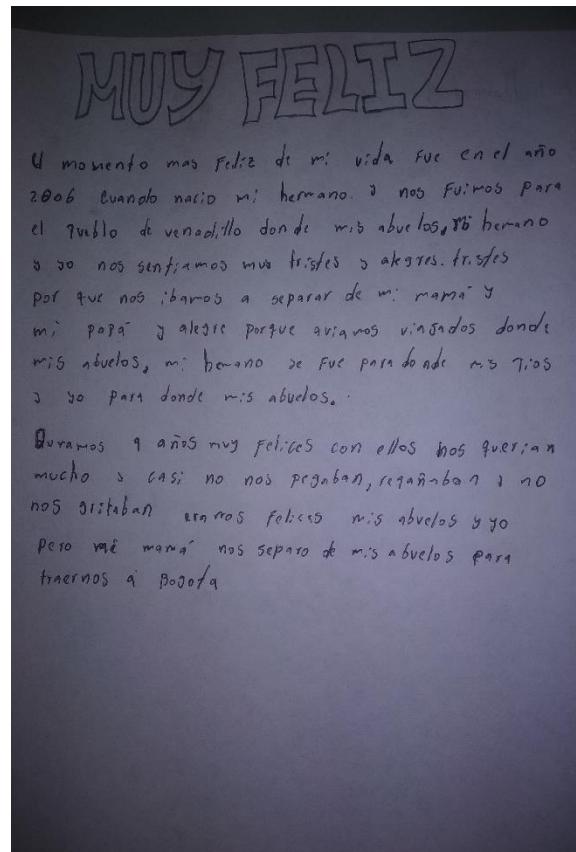 MUY FELIZ
El momento mas Feliz de mi vida Fue en el año
2006 cuando nacio mi hermano. y nos Fuimos para
el pueblo de venadillo donde mis abuelos, mi hermano
y yo nos sentiamos muy tristes y alegres. tristes
por que nos ibamos a separar de mi mamá y
mi papá y alegre porque aviamos viajados donde
mis abuelos, mi hemano se Fue para donde mis Tios
y yo para donde mis abuelos.
Duramos 9 años muy Felices con ellos nos querian
mucho y casi no nos pegaban, regañaban y no
nos gritaban eramos Felices mis abuelos y yo
Pero mi mamá nos separo de mis abuelos para
traernos a Bogota